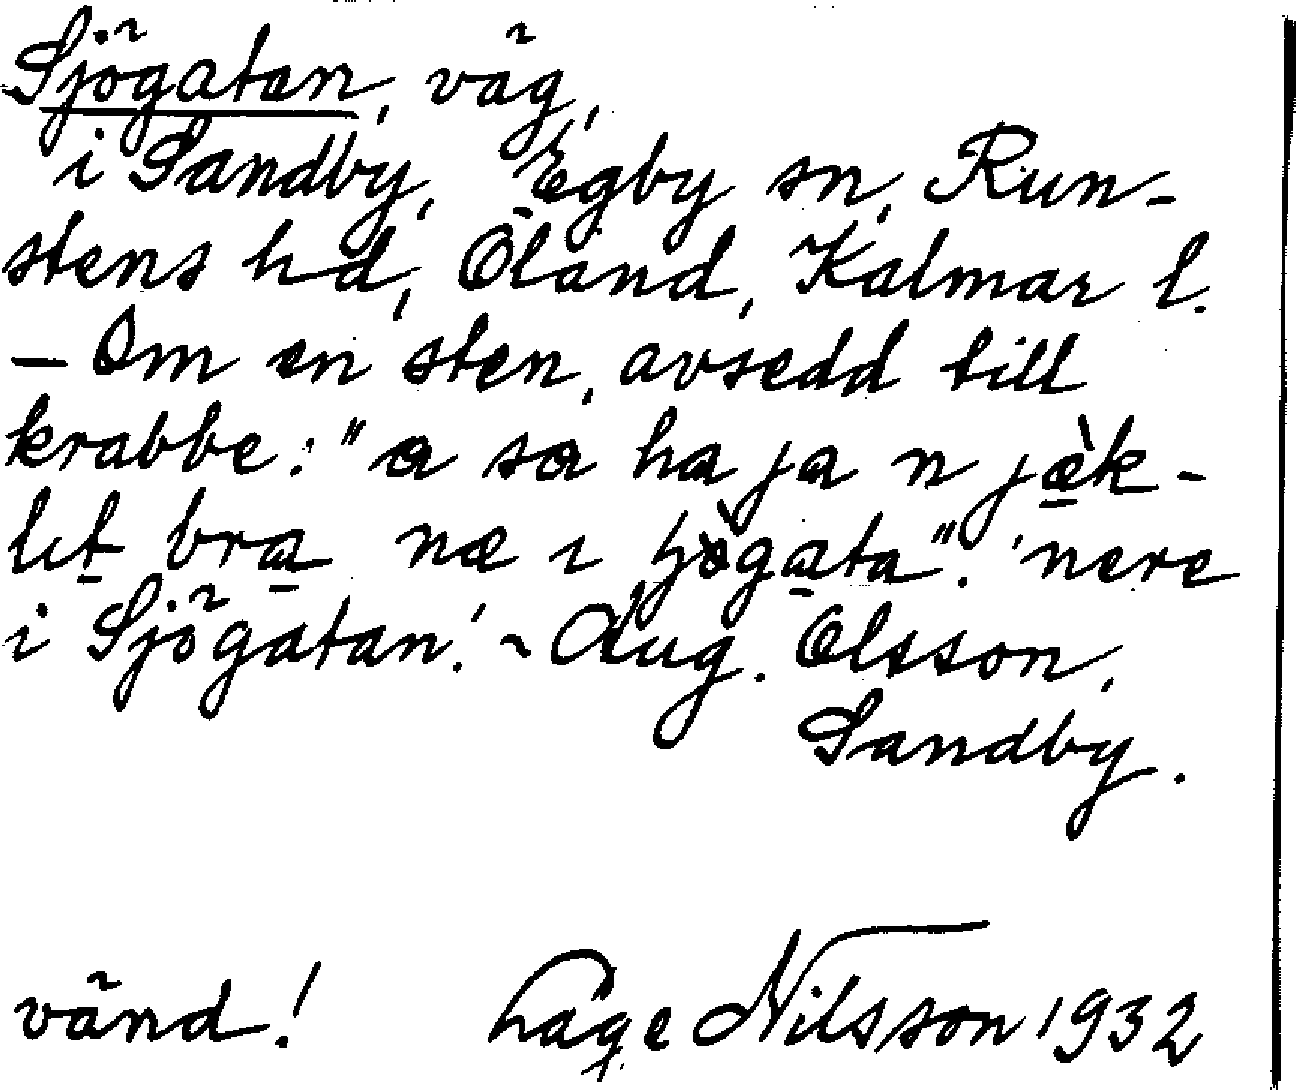 Sjögatan, väg,
i Sandby, Egby sn, Run-
stens hd, Öland, Kalmar l.
– Om en sten, avsedd till
krabbe: "a sa ha ja n jæ̀k-
lıt bra næ ı ɧö̀gata". 'nere
i Sjögatan.' – Aug. Olsson,
Sandby.
vänd! Låge Nilsson 1932